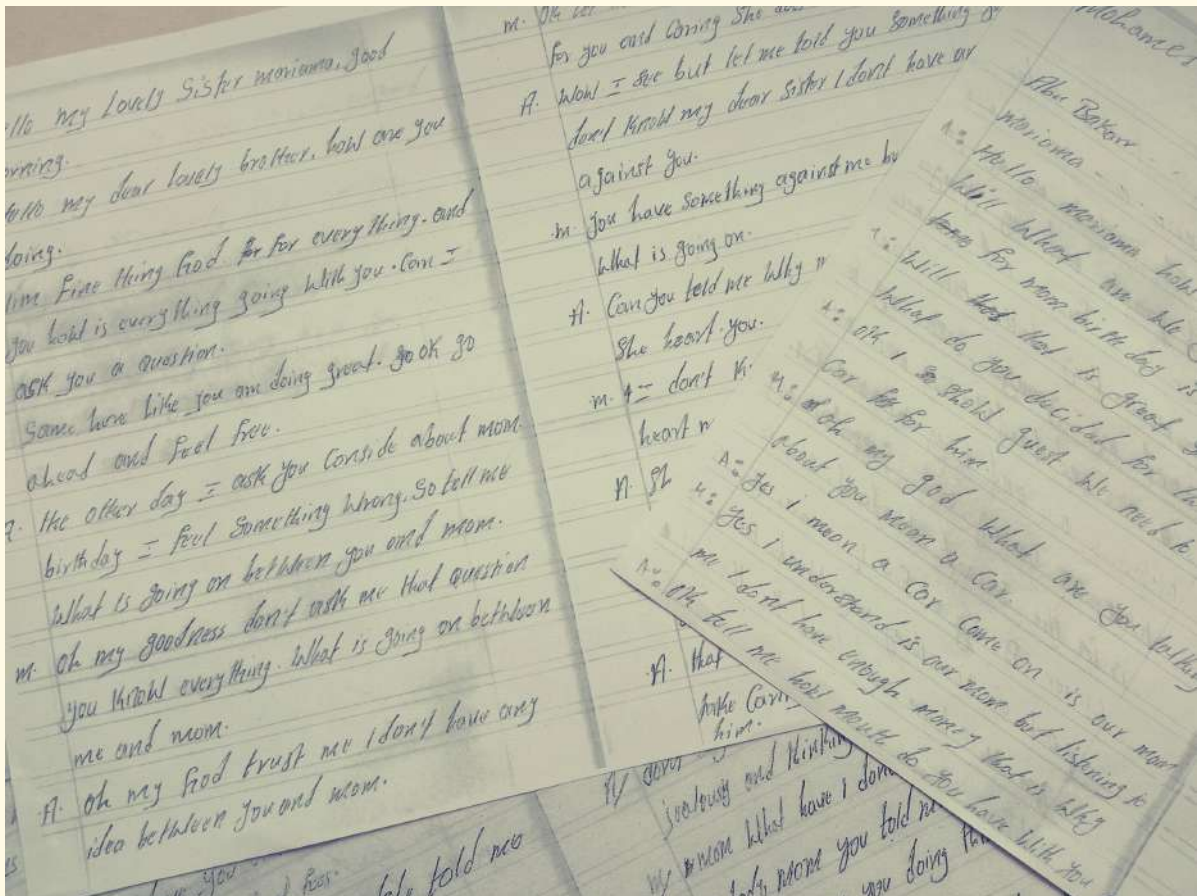 llo my Lovely Sister mariama, good
orning.
Hallo my dear lovely brother, how are you
doing.
I'm fine thing God for for everything. and
you how is everything going with you. Can I
ask you a question.
Same here like you am doing great. so ok go
ahead and feel free.
A. the other day I ask you conside about mom
birthday I feel something wrong. So tell me
what is going on bethleen you and mom.
m. oh my goodness don't ask me that question
you know everything. what is going on bethleen
me and mom.
A. oh my God trust me I don't have any
idea bethleen you and mom.
m. ok let
for you and caring She
A. wow I see but let me told you something
don't know my dear Sister I don't have an
against you.
m. you have something against me bu
what is going on.
A. Can you told me why
She heart you.
m. I don't k
heart m
A. Sh
A. that
take carin
him.
Mohames
Abu Bakarr
mariama
A: Hallo mariama how
will what are we
for mom birthday is
A: will that is great
what do you decided for
A: ok I so shold guest we need to
car for for him
M: oh my god what are you talking
about you mean a car.
A: yes i mean a car come on is our mom
M: yes i understand is our mom but listning to
me I dont have enough money that is why
A: ok tell me how mouth do you have with you
jealously and thinking
mom what have i don
mom you told m
you doing thi
told me